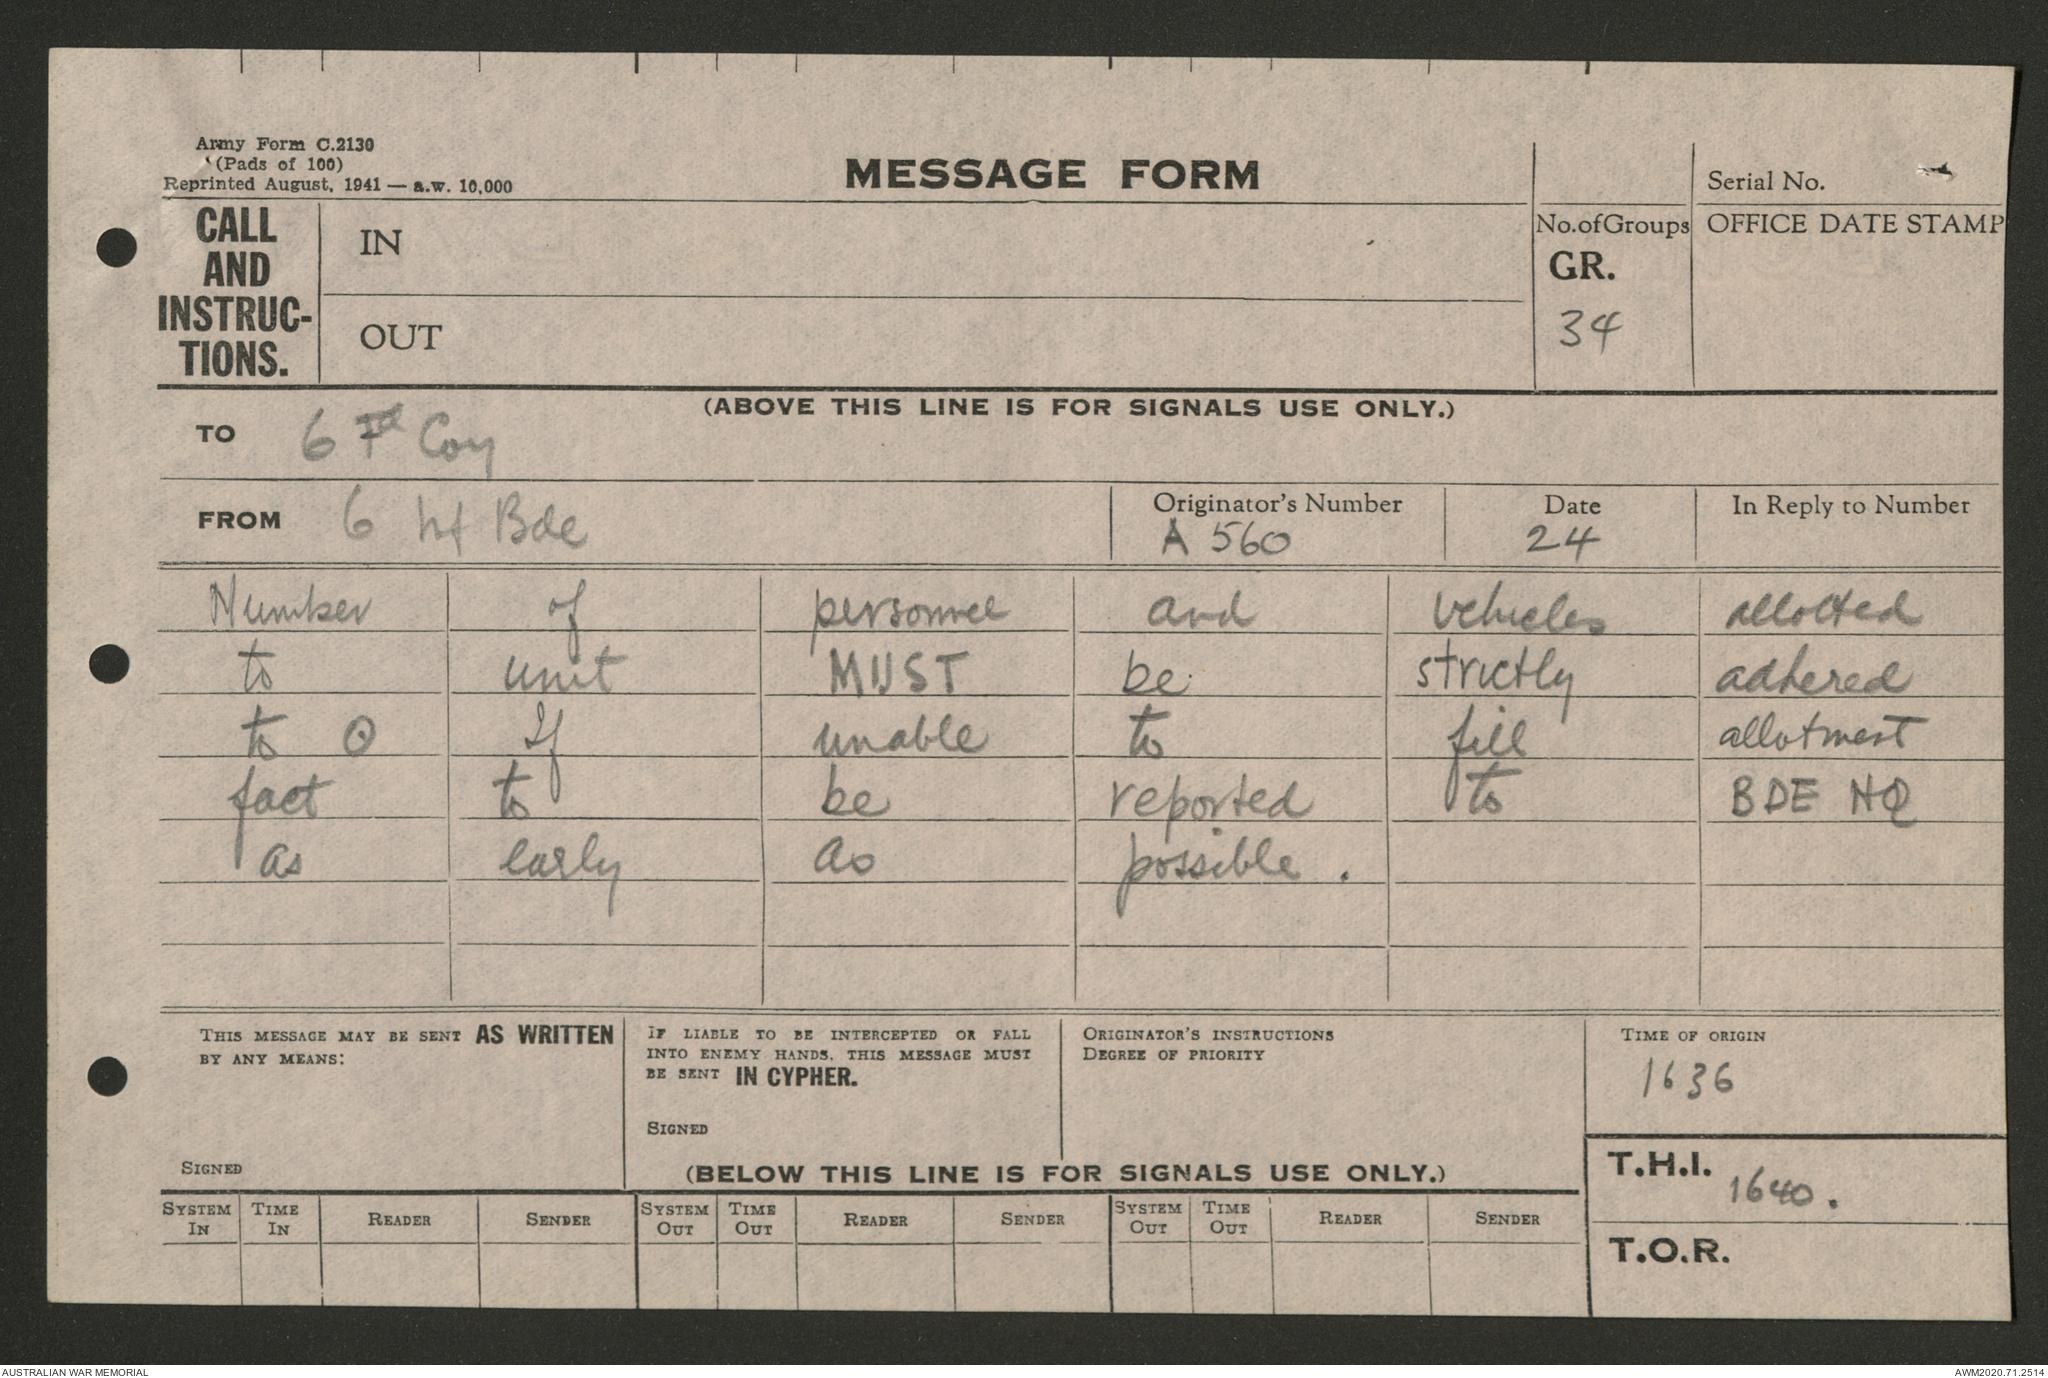 Army Form C.2130
(Pads of 100)
Reprinted August, 1941 — a.w. 10,000
MESSAGE FORM
Serial No.
CALL AND INSTRUC-TIONS.
IN
No. of Groups
GR.
34
OFFICE DATE STAMP
OUT
(ABOVE THIS LINE IS FOR SIGNALS USE ONLY.)
TO 6 Fd Coy
FROM 6 Inf Bde
Originator's Number
A 560
Date
24
In Reply to Number
Number of personnel and vehicles allotted
to unit MUST be strictly adhered
to ⊙ If unable to fill allotment
fact to be reported to BDE HQ
as early as possible .
THIS MESSAGE MAY BE SENT AS WRITTEN
BY ANY MEANS:
SIGNED
IF LIABLE TO BE INTERCEPTED OR FALL
INTO ENEMY HANDS, THIS MESSAGE MUST
BE SENT IN CYPHER.
SIGNED
ORIGINATOR'S INSTRUCTIONS
DEGREE OF PRIORITY
TIME OF ORIGIN
1636
T.H.I. 1640 .
T.O.R.
(BELOW THIS LINE IS FOR SIGNALS USE ONLY.)
SYSTEM IN TIME IN READER SENDER SYSTEM OUT TIME OUT READER SENDER SYSTEM OUT TIME OUT READER SENDER
AUSTRALIAN WAR MEMORIAL
AWM2020.71.2514